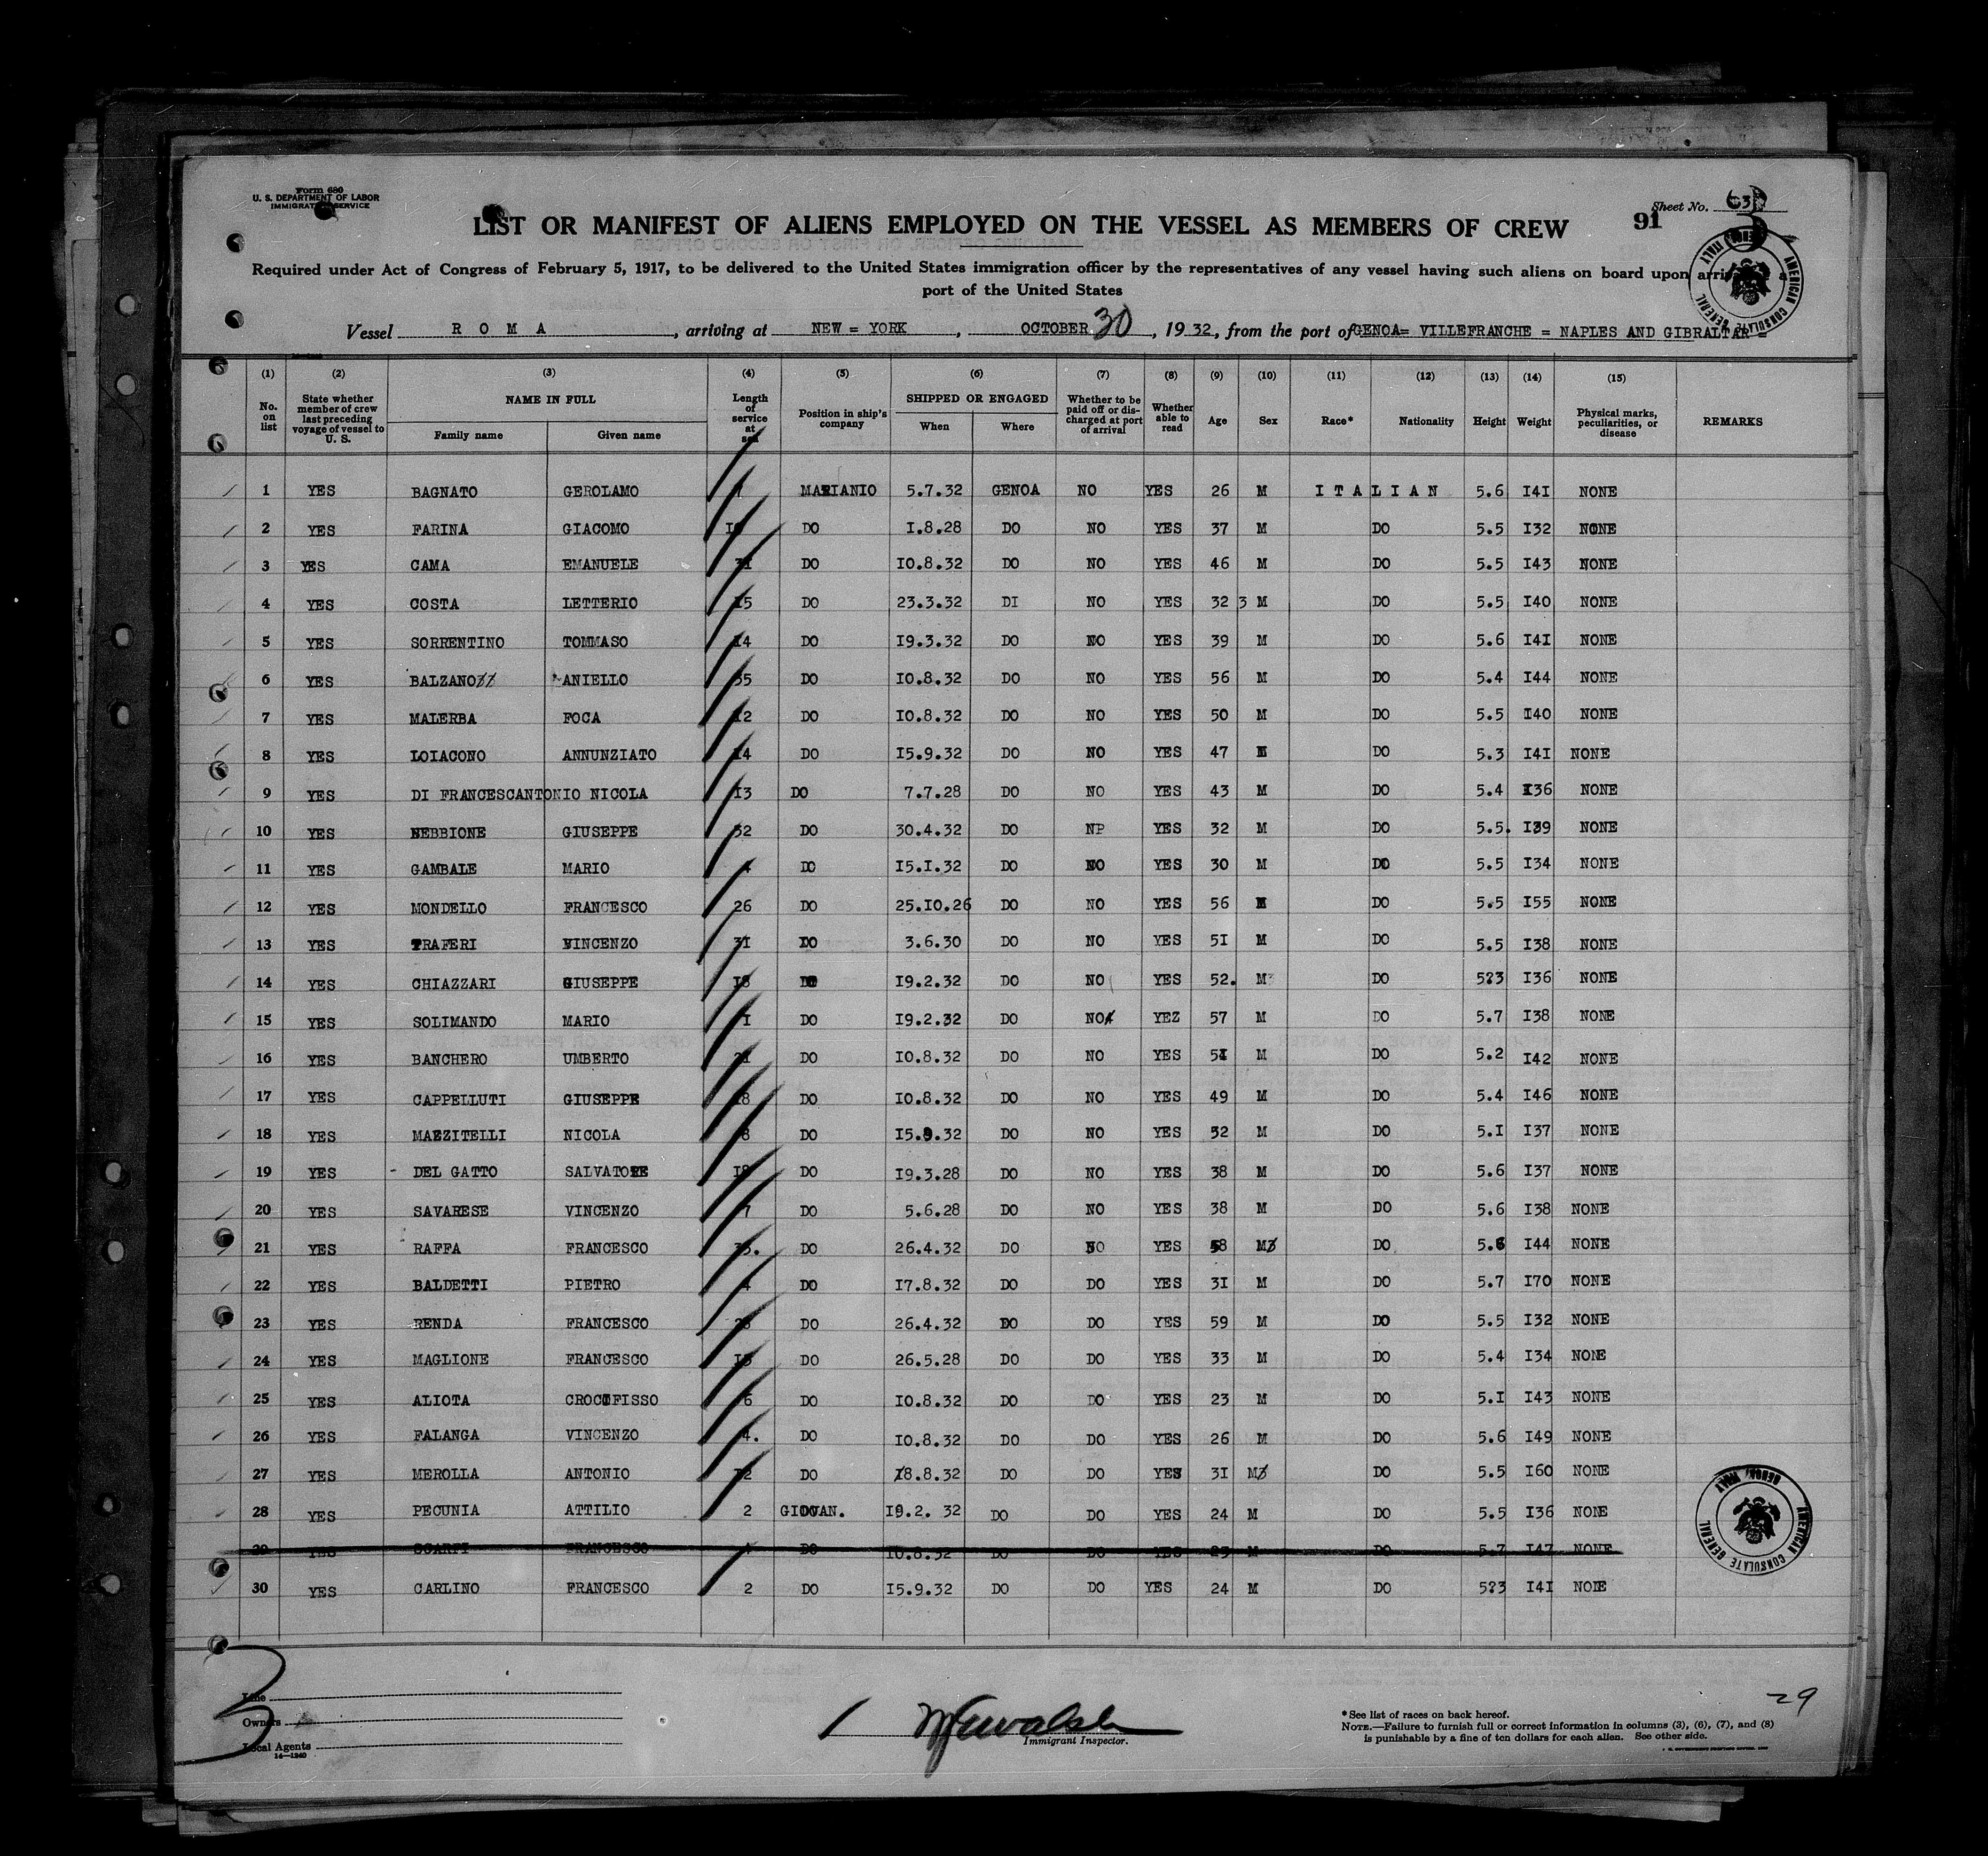 Form 680
U. S. DEPARTMENT OF LABOR
IMMIGRATION SERVICE
Sheet No. 63
91
LIST OR MANIFEST OF ALIENS EMPLOYED ON THE VESSEL AS MEMBERS OF CREW
Required under Act of Congress of February 5, 1917, to be delivered to the United States immigration officer by the representatives of any vessel having such aliens on board upon
port of the United States
Vessel R O M A, arriving at NEW = YORK, OCTOBER 30, 1932, from the port of GENOA= VILLEFRANCHE = NAPLES AND GIBRALTAR =
AMERICAN CONSULATE GENERAL GENOA, ITALY
(1) (2) (3) (4) (5) (6) (7) (8) (9) (10) (11) (12) (13) (14) (15)
No. on list
State whether member of crew last preceding voyage of vessel to U. S.
NAME IN FULL
Family name
Given name
Length of service at sea
Position in ship's company
SHIPPED OR ENGAGED
When
Where
Whether to be paid off or discharged at port of arrival
Whether able to read
Age
Sex
Race*
Nationality
Height
Weight
Physical marks, peculiarities, or disease
REMARKS
1 YES BAGNATO GEROLAMO MARIANIO 5.7.32 GENOA NO YES 26 M I T A L I A N 5.6 I4I NONE
2 YES FARINA GIACOMO DO I.8.28 DO NO YES 37 M DO 5.5 I32 NONE
3 YES CAMA EMANUELE DO I0.8.32 DO NO YES 46 M DO 5.5 I43 NONE
4 YES COSTA LETTERIO I5 DO 23.3.32 DI NO YES 32 3 M DO 5.5 I40 NONE
5 YES SORRENTINO TOMMASO I4 DO I9.3.32 DO NO YES 39 M DO 5.6 I4I NONE
6 YES BALZANO ANIELLO 35 DO I0.8.32 DO NO YES 56 M DO 5.4 I44 NONE
7 YES MALERBA FOCA I2 DO I0.8.32 DO NO YES 50 M DO 5.5 I40 NONE
8 YES LOIACONO ANNUNZIATO I4 DO I5.9.32 DO NO YES 47 M DO 5.3 I4I NONE
9 YES DI FRANCESCANTONIO NICOLA I3 DO 7.7.28 DO NO YES 43 M DO 5.4 I36 NONE
10 YES NEBBIONE GIUSEPPE 32 DO 30.4.32 DO NP YES 32 M DO 5.5. I39 NONE
11 YES GAMBALE MARIO 4 DO I5.I.32 DO NO YES 30 M DO 5.5 I34 NONE
12 YES MONDELLO FRANCESCO 26 DO 25.I0.26 DO NO YES 56 M DO 5.5 I55 NONE
13 YES TRAFERI VINCENZO 3I DO 3.6.30 DO NO YES 5I M DO 5.5 I38 NONE
14 YES CHIAZZARI GIUSEPPE I8 DO I9.2.32 DO NO YES 52. M DO 5?3 I36 NONE
15 YES SOLIMANDO MARIO I DO I9.2.32 DO NO YEZ 57 M DO 5.7 I38 NONE
16 YES BANCHERO UMBERTO DO I0.8.32 DO NO YES 5I M DO 5.2 I42 NONE
17 YES CAPPELLUTI GIUSEPPE DO I0.8.32 DO NO YES 49 M DO 5.4 I46 NONE
18 YES MAZZITELLI NICOLA 8 DO I5.9.32 DO NO YES 52 M DO 5.I I37 NONE
19 YES DEL GATTO SALVATORE DO I9.3.28 DO NO YES 38 M DO 5.6 I37 NONE
20 YES SAVARESE VINCENZO 7 DO 5.6.28 DO NO YES 38 M DO 5.6 I38 NONE
21 YES RAFFA FRANCESCO DO 26.4.32 DO NO YES 58 M DO 5.6 I44 NONE
22 YES BALDETTI PIETRO 4 DO I7.8.32 DO DO YES 3I M DO 5.7 I70 NONE
23 YES RENDA FRANCESCO DO 26.4.32 DO DO YES 59 M DO 5.5 I32 NONE
24 YES MAGLIONE FRANCESCO DO 26.5.28 DO DO YES 33 M DO 5.4 I34 NONE
25 YES ALIOTA CROCIFISSO 6 DO I0.8.32 DO DO YES 23 M DO 5.I I43 NONE
26 YES FALANGA VINCENZO 4. DO I0.8.32 DO DO YES 26 M DO 5.6 I49 NONE
27 YES MEROLLA ANTONIO I2 DO I8.8.32 DO DO YES 3I M DO 5.5 I60 NONE
28 YES PECUNIA ATTILIO 2 GIOVAN. I9.2. 32 DO DO YES 24 M DO 5.5 I36 NONE
29 YES SCARFI FRANCESCO DO I0.8.32 DO DO YES M DO 5.7 I47 NONE
30 YES CARLINO FRANCESCO 2 DO I5.9.32 DO DO YES 24 M DO 5?3 I4I NONE
AMERICAN CONSULATE GENERAL GENOA, ITALY
3
Line
Owners
Local Agents
14—1240
Immigrant Inspector.
29
* See list of races on back hereof.
NOTE.—Failure to furnish full or correct information in columns (3), (6), (7), and (8)
is punishable by a fine of ten dollars for each alien. See other side.